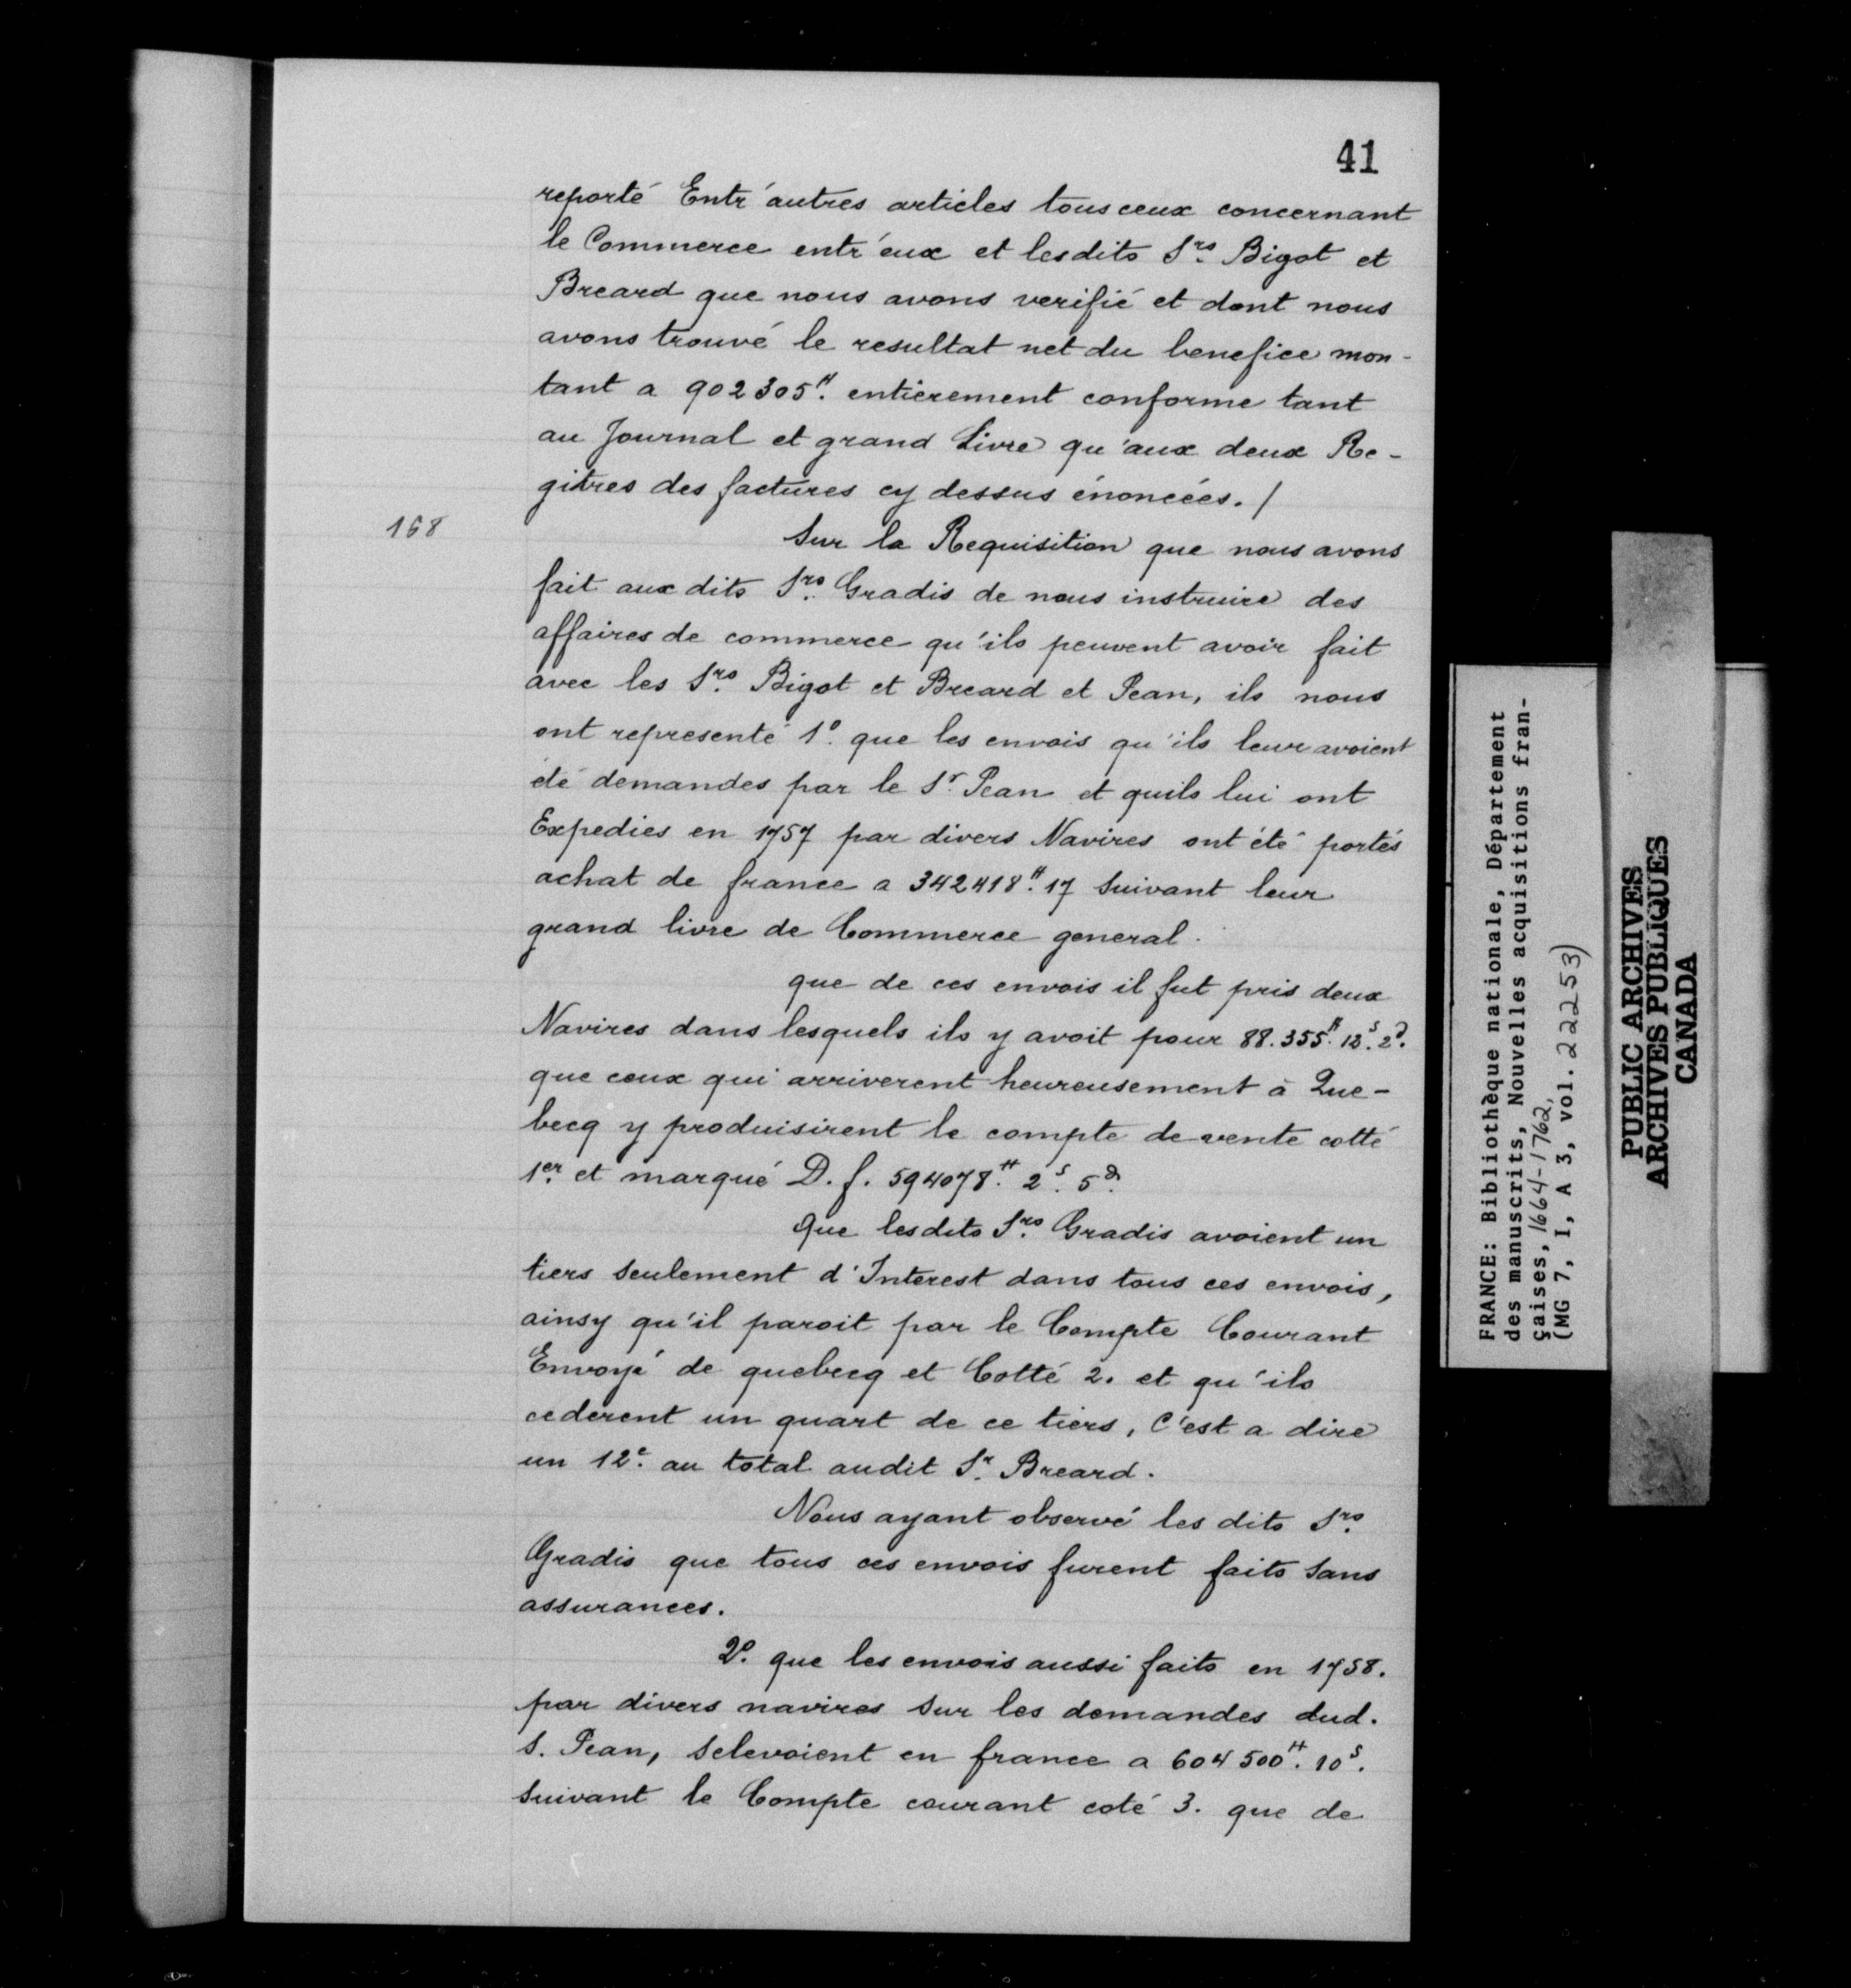 41
reporté Entr'autres articles tous ceux concernant
le Commerce entr'eux et lesdits Srs. Bigot et
Breard que nous avons verifié et dont nous
avons trouvé le resultat net du benefice mon-
tant a 902305₶. entièrement conforme tant
au Journal et grand Livre qu'aux deux Re-
gitres des factures cy dessus énoncées. /
168
Sur la Requisition que nous avons
fait aux dits Srs. Gradis de nous instruire des
affaires de commerce qu'ils peuvent avoir fait
avec les Srs. Bigot et Breard et Pean, ils nous
ont representé 1º. que les envois qu'ils leur avoient
été demandes par le Sr. Pean et quils lui ont
Expedies en 1757 par divers Navires ont été portés
achat de france a 342418₶. 17 suivant leur
grand livre de Commerce general.
que de ces envois il fut pris deux
Navires dans lesquels ils y avoit pour 88.355₶. 12s. 2d.
que ceux qui arriverent heureusement à Que-
becq y produisirent le compte de vente cotté
1er. et marqué D. f. 594078₶. 2s. 5d.
Que lesdits Srs. Gradis avoient un
tiers seulement d'Interest dans tous ces envois,
ainsy qu'il paroit par le Compte Courant
Envoyé de quebecq et Cotté 2. et qu'ils
cederent un quart de ce tiers, C'est a dire
un 12e. au total audit Sr. Breard.
Nous ayant observé les dits Srs.
Gradis que tous ces envois furent faits sans
assurances.
2º. que les envois aussi faits en 1758.
par divers navires sur les demandes dud.
S. Pean, selevoient en france a 604500₶. 10s.
suivant le Compte courant coté 3. que de
FRANCE: Bibliothèque nationale, Département
des manuscrits, Nouvelles acquisitions fran-
çaises, 1664-1762,
(MG 7, I, A 3, vol. 22253)
PUBLIC ARCHIVES
ARCHIVES PUBLIQUES
CANADA